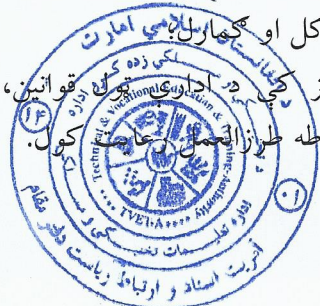 کل او ګمارل؛
کې د ادارې ټول قوانین،
طرزالعمل رعایت کول.
افغانستان اسلامي امارت
Technical & Vocational Education & Training Authority
TVET-A
اداره تعلیمات تخنیکی و مسلکی
آمریت اسناد و ارتباط ریاست دفتر مقام